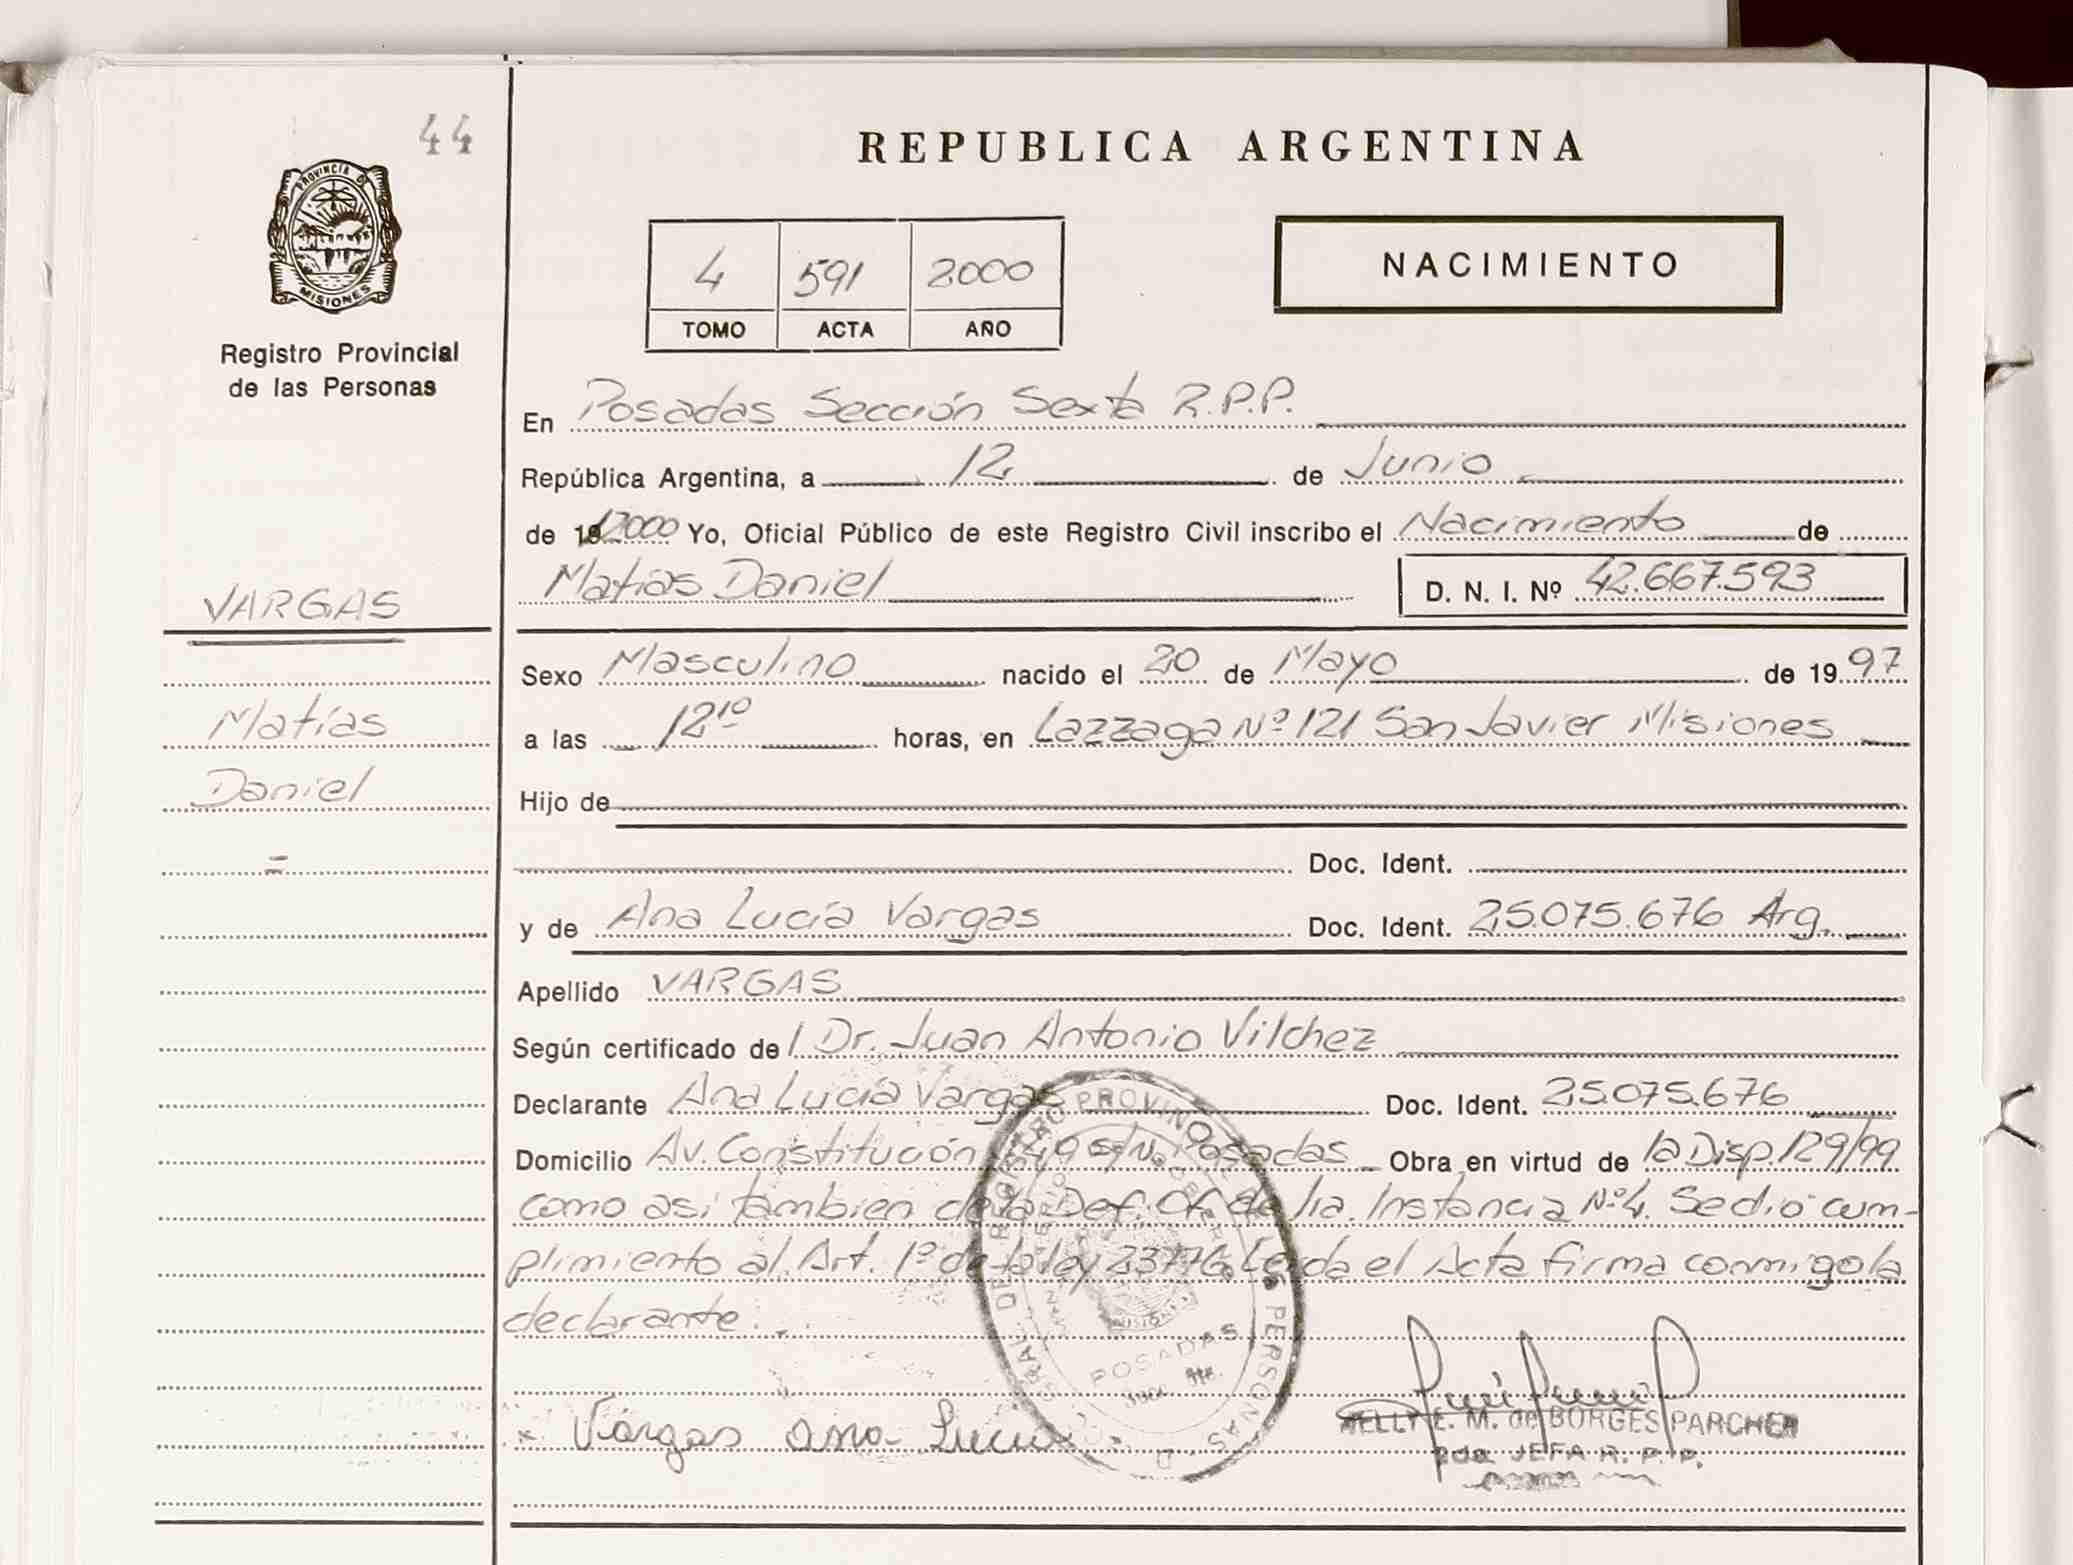 44
REPUBLICA ARGENTINA
PROVINCIA DE
MISIONES
Registro Provincial
de las Personas
4 591 2000
TOMO ACTA AÑO
NACIMIENTO
En Posadas Sección Sexta R.P.P.
República Argentina, a 12 de Junio
de 2000 Yo, Oficial Público de este Registro Civil inscribo el Nacimiento de
Matías Daniel D. N. I. Nº 42.667.593
VARGAS
Sexo Masculino nacido el 20 de Mayo de 1997
Matías
a las 12¹⁰ horas, en Lazzaga Nº 121 San Javier Misiones
Daniel
Hijo de
Doc. Ident.
y de Ana Lucía Vargas Doc. Ident. 25.075.676 Arg.
Apellido VARGAS
Según certificado de l Dr. Juan Antonio Vilchez
Declarante Ana Lucía Vargas Doc. Ident. 25.075.676
Domicilio Av. Constitución s/Nº Posadas Obra en virtud de la Disp. 129/99
como asi tambien de la Def. Of. de 1ra. Instancia Nº 4. Se dió cum-
plimiento al Art. 1º de la ley 23776. Leída el Acta firma conmigo la
declarante.
POSADAS
x Vargas ana Lucia
NELLY E. M. de BORGES PARCHEN
JEFA R. P. P.